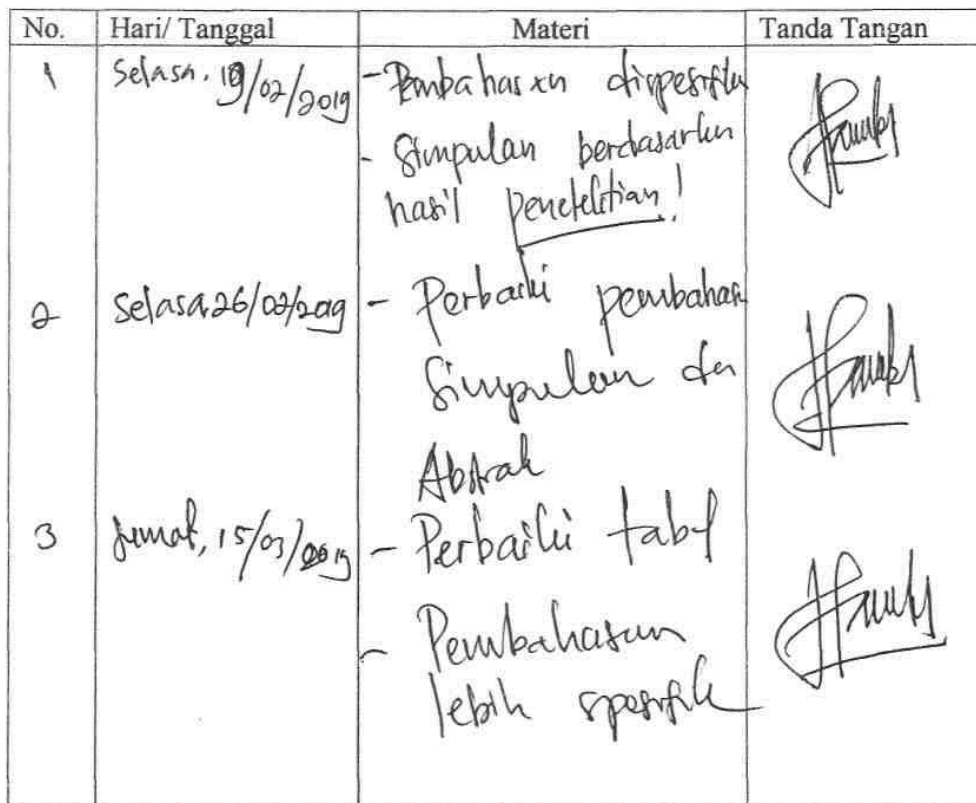 No. Hari/ Tanggal Materi Tanda Tangan
1 Selasa, 19/02/2019 - Pembahasan dispesifik
- Simpulan berdasarkan
hasil penetelitian!
2 Selasa, 26/02/2019 - Perbaiki pembahasan
Simpulan dan
Abstrak
3 Jumat, 15/03/2019 - Perbaiki tabel
- Pembahasan
lebih spesifik